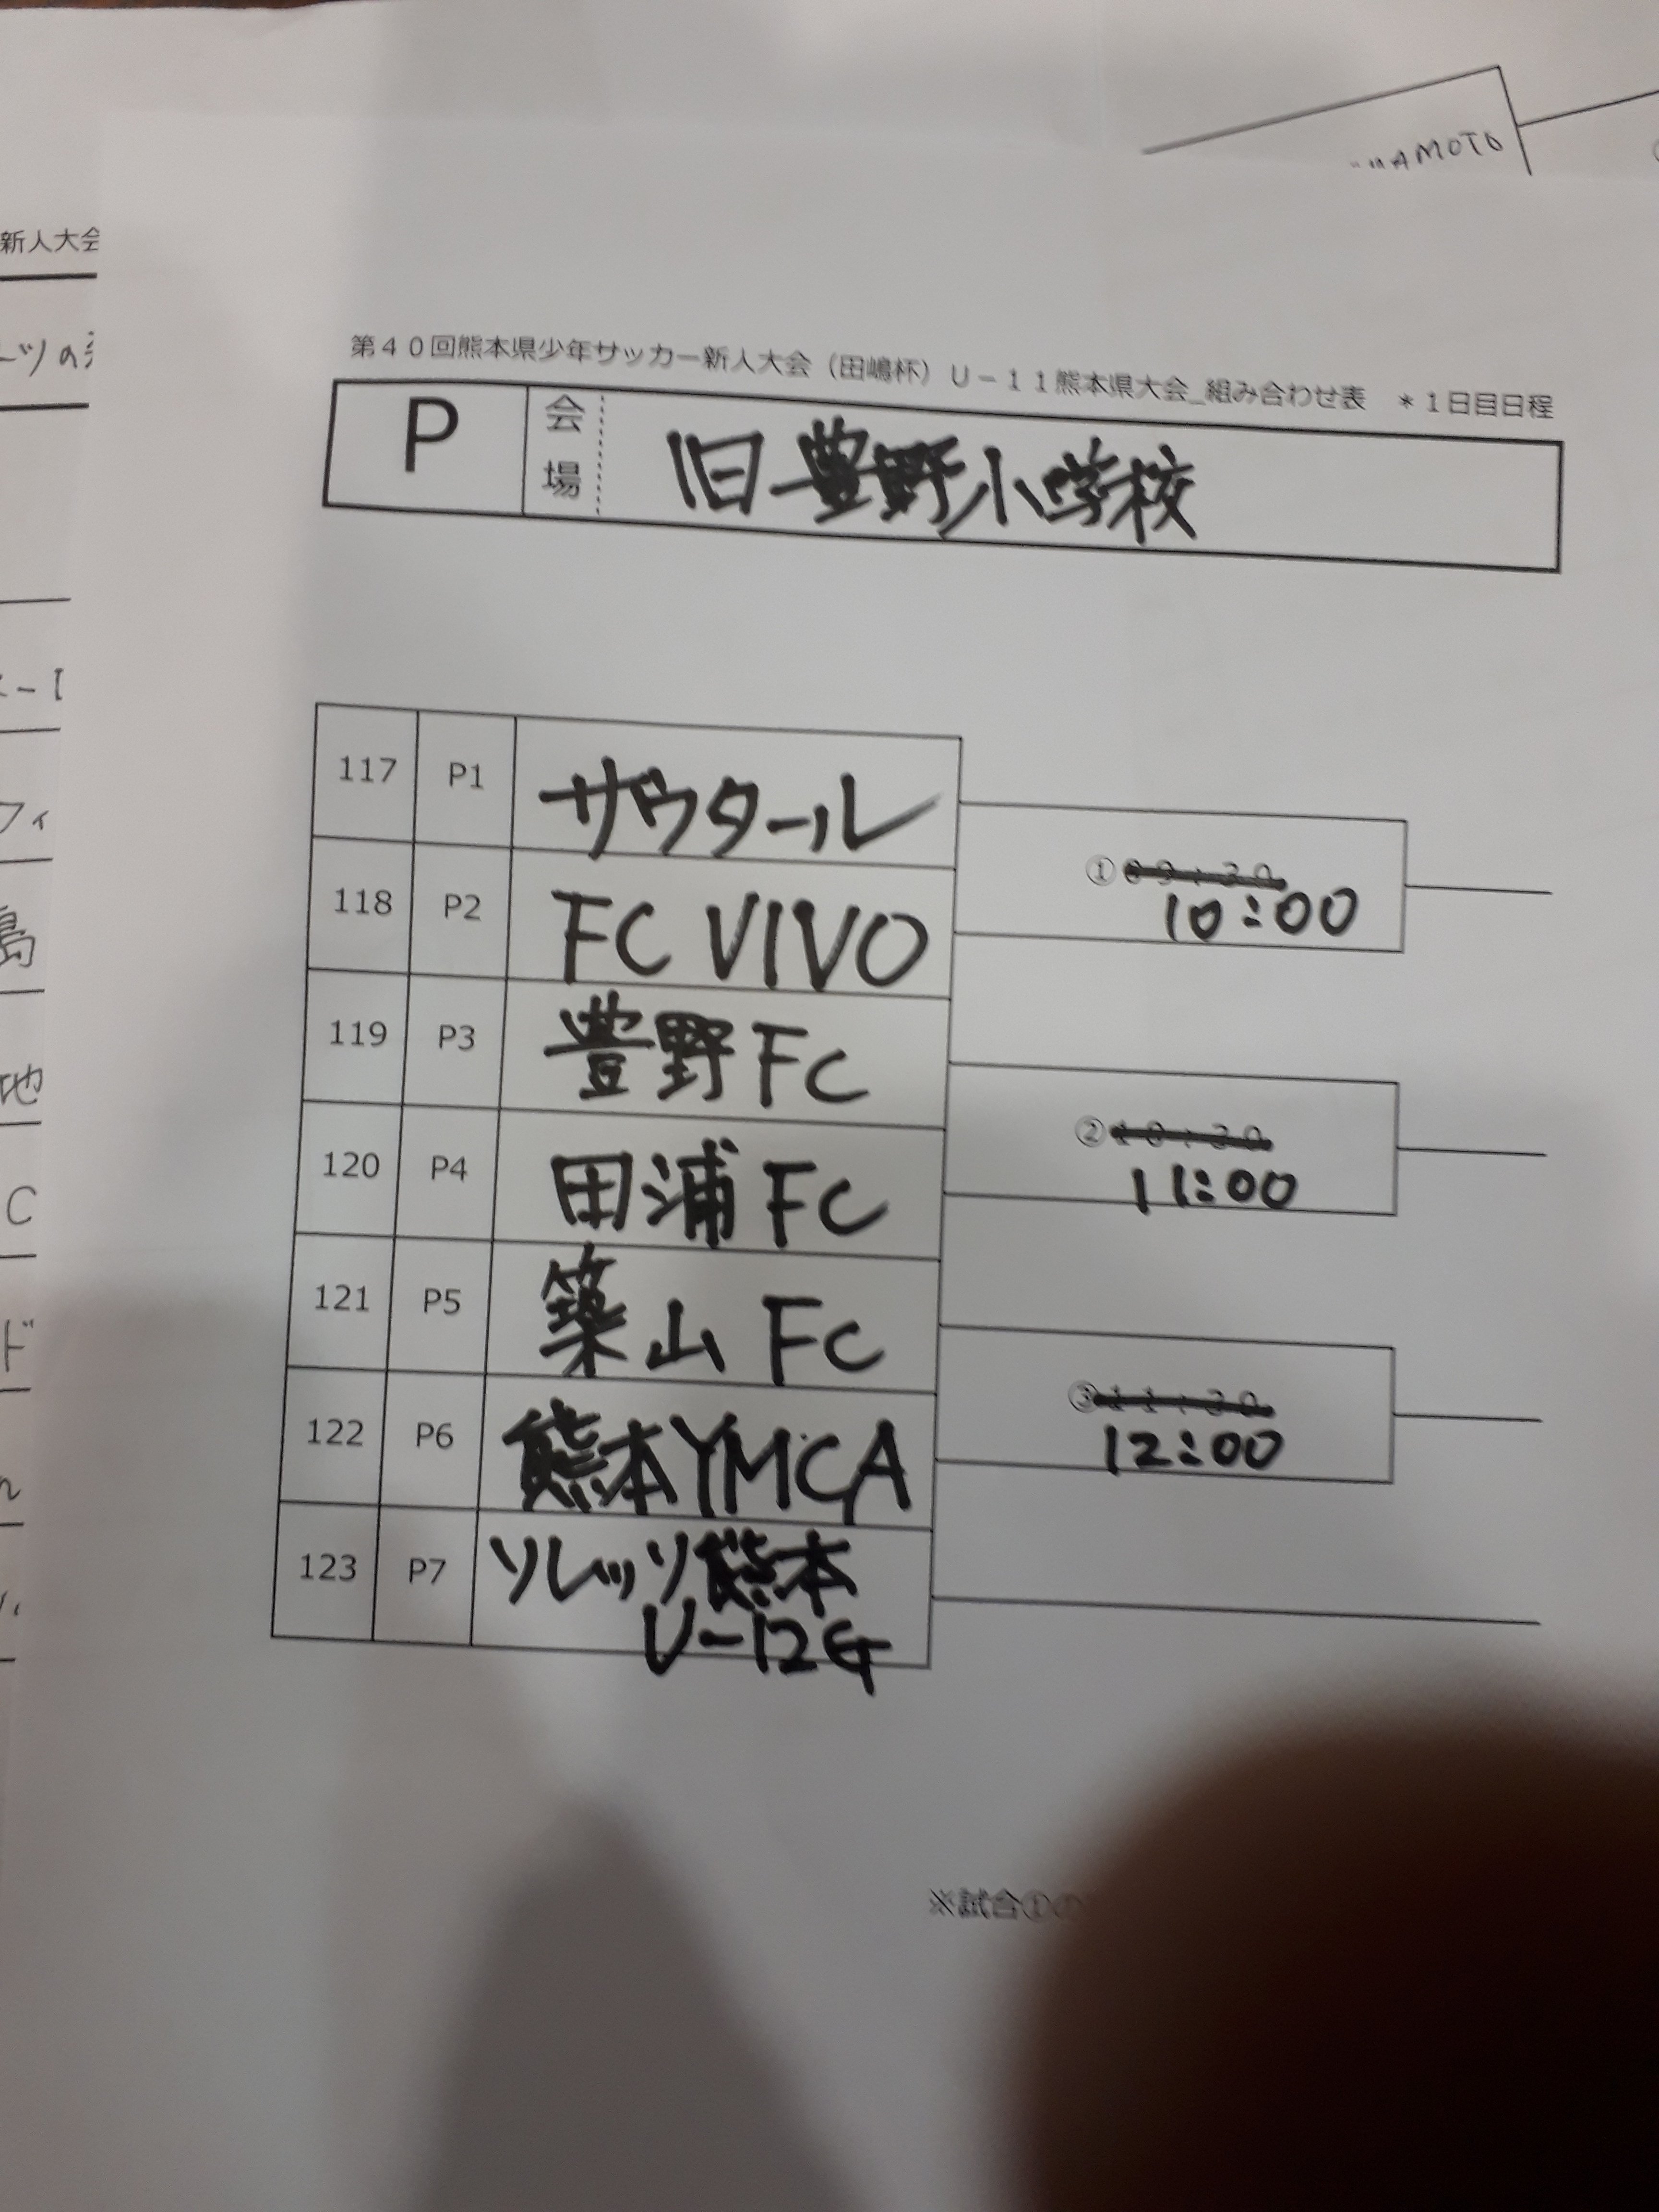 MOTO
新人大会
ツの
第40回熊本県少年サッカー新人大会（田嶋杯）U－11熊本県大会_組み合わせ表　＊1日目日程
P 会場 旧豊野小学校
117 P1 サウタール
① 09:30
10:00
118 P2 FC VIVO
119 P3 豊野FC
② 10:30
11:00
120 P4 田浦FC
121 P5 築山FC
③ 11:30
12:00
122 P6 熊本YMCA
123 P7 ソレッソ熊本
U-12G
フィ
島
地
C
ド
※試合①の